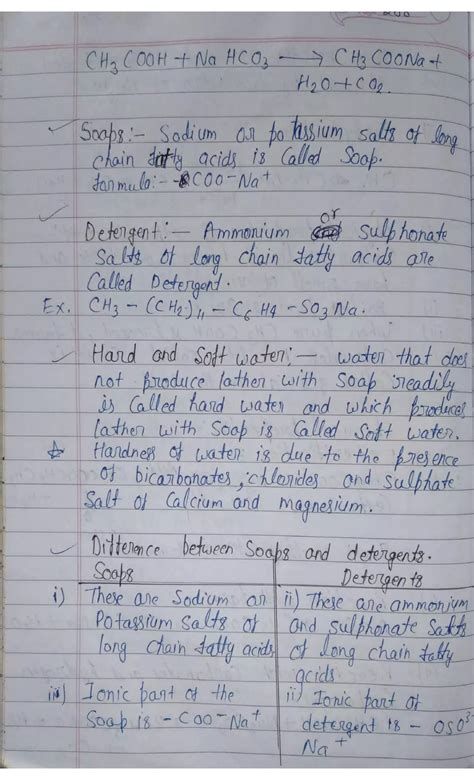 CH₃ COOH + Na HCO₃ → CH₃ COONa +
H₂O + CO₂.
Soaps:- Sodium or potassium salts of long
chain fatty acids is Called Soap.
formula:- COO⁻Na⁺
Detergent:- Ammonium or Sulphonate
Salts of long chain fatty acids are
Called Detergent.
Ex. CH₃ - (CH₂)₁₁ - C₆ H₄ - SO₃ Na.
Hard and Soft water:- water that does
not produce lather with soap readily
is Called hard water and which produces
lather with Soap is Called Soft water.
Hardness of water is due to the presence
of bicarbonates, chlorides and sulphate
Salt of Calcium and magnesium.
Difference between Soaps and detergents.
Soaps
Detergents
i) These are Sodium or
Potassium Salts of
long chain fatty acids
ii) These are ammonium
and sulphonate Salts
of long chain fatty
acids
Ionic part of the
Soap is - Coo⁻Na⁺
ii) Ionic part of
detergent is - OSO³
Na⁺